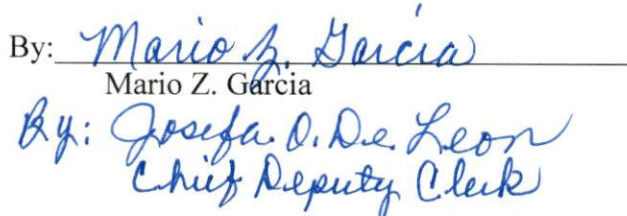 By: Mario Z. Garcia
Mario Z. Garcia
By: Josefa O. De Leon
Chief Deputy Clerk